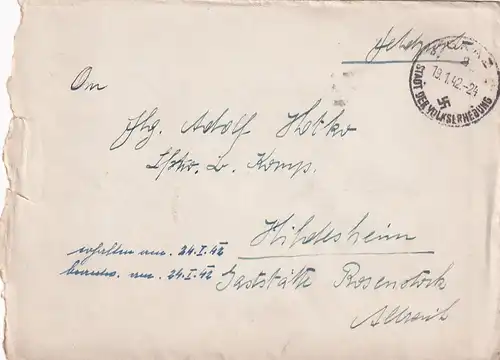 Feldpost
GRAZ
19.1.42.-24
STADT DER VOLKSERHEBUNG
An
Flg. Adolf Hotko
L. Komp.
Hildesheim
erhalten am. 24.I.42
beantw. am. 24.I.42
Gaststätte Rosenstock